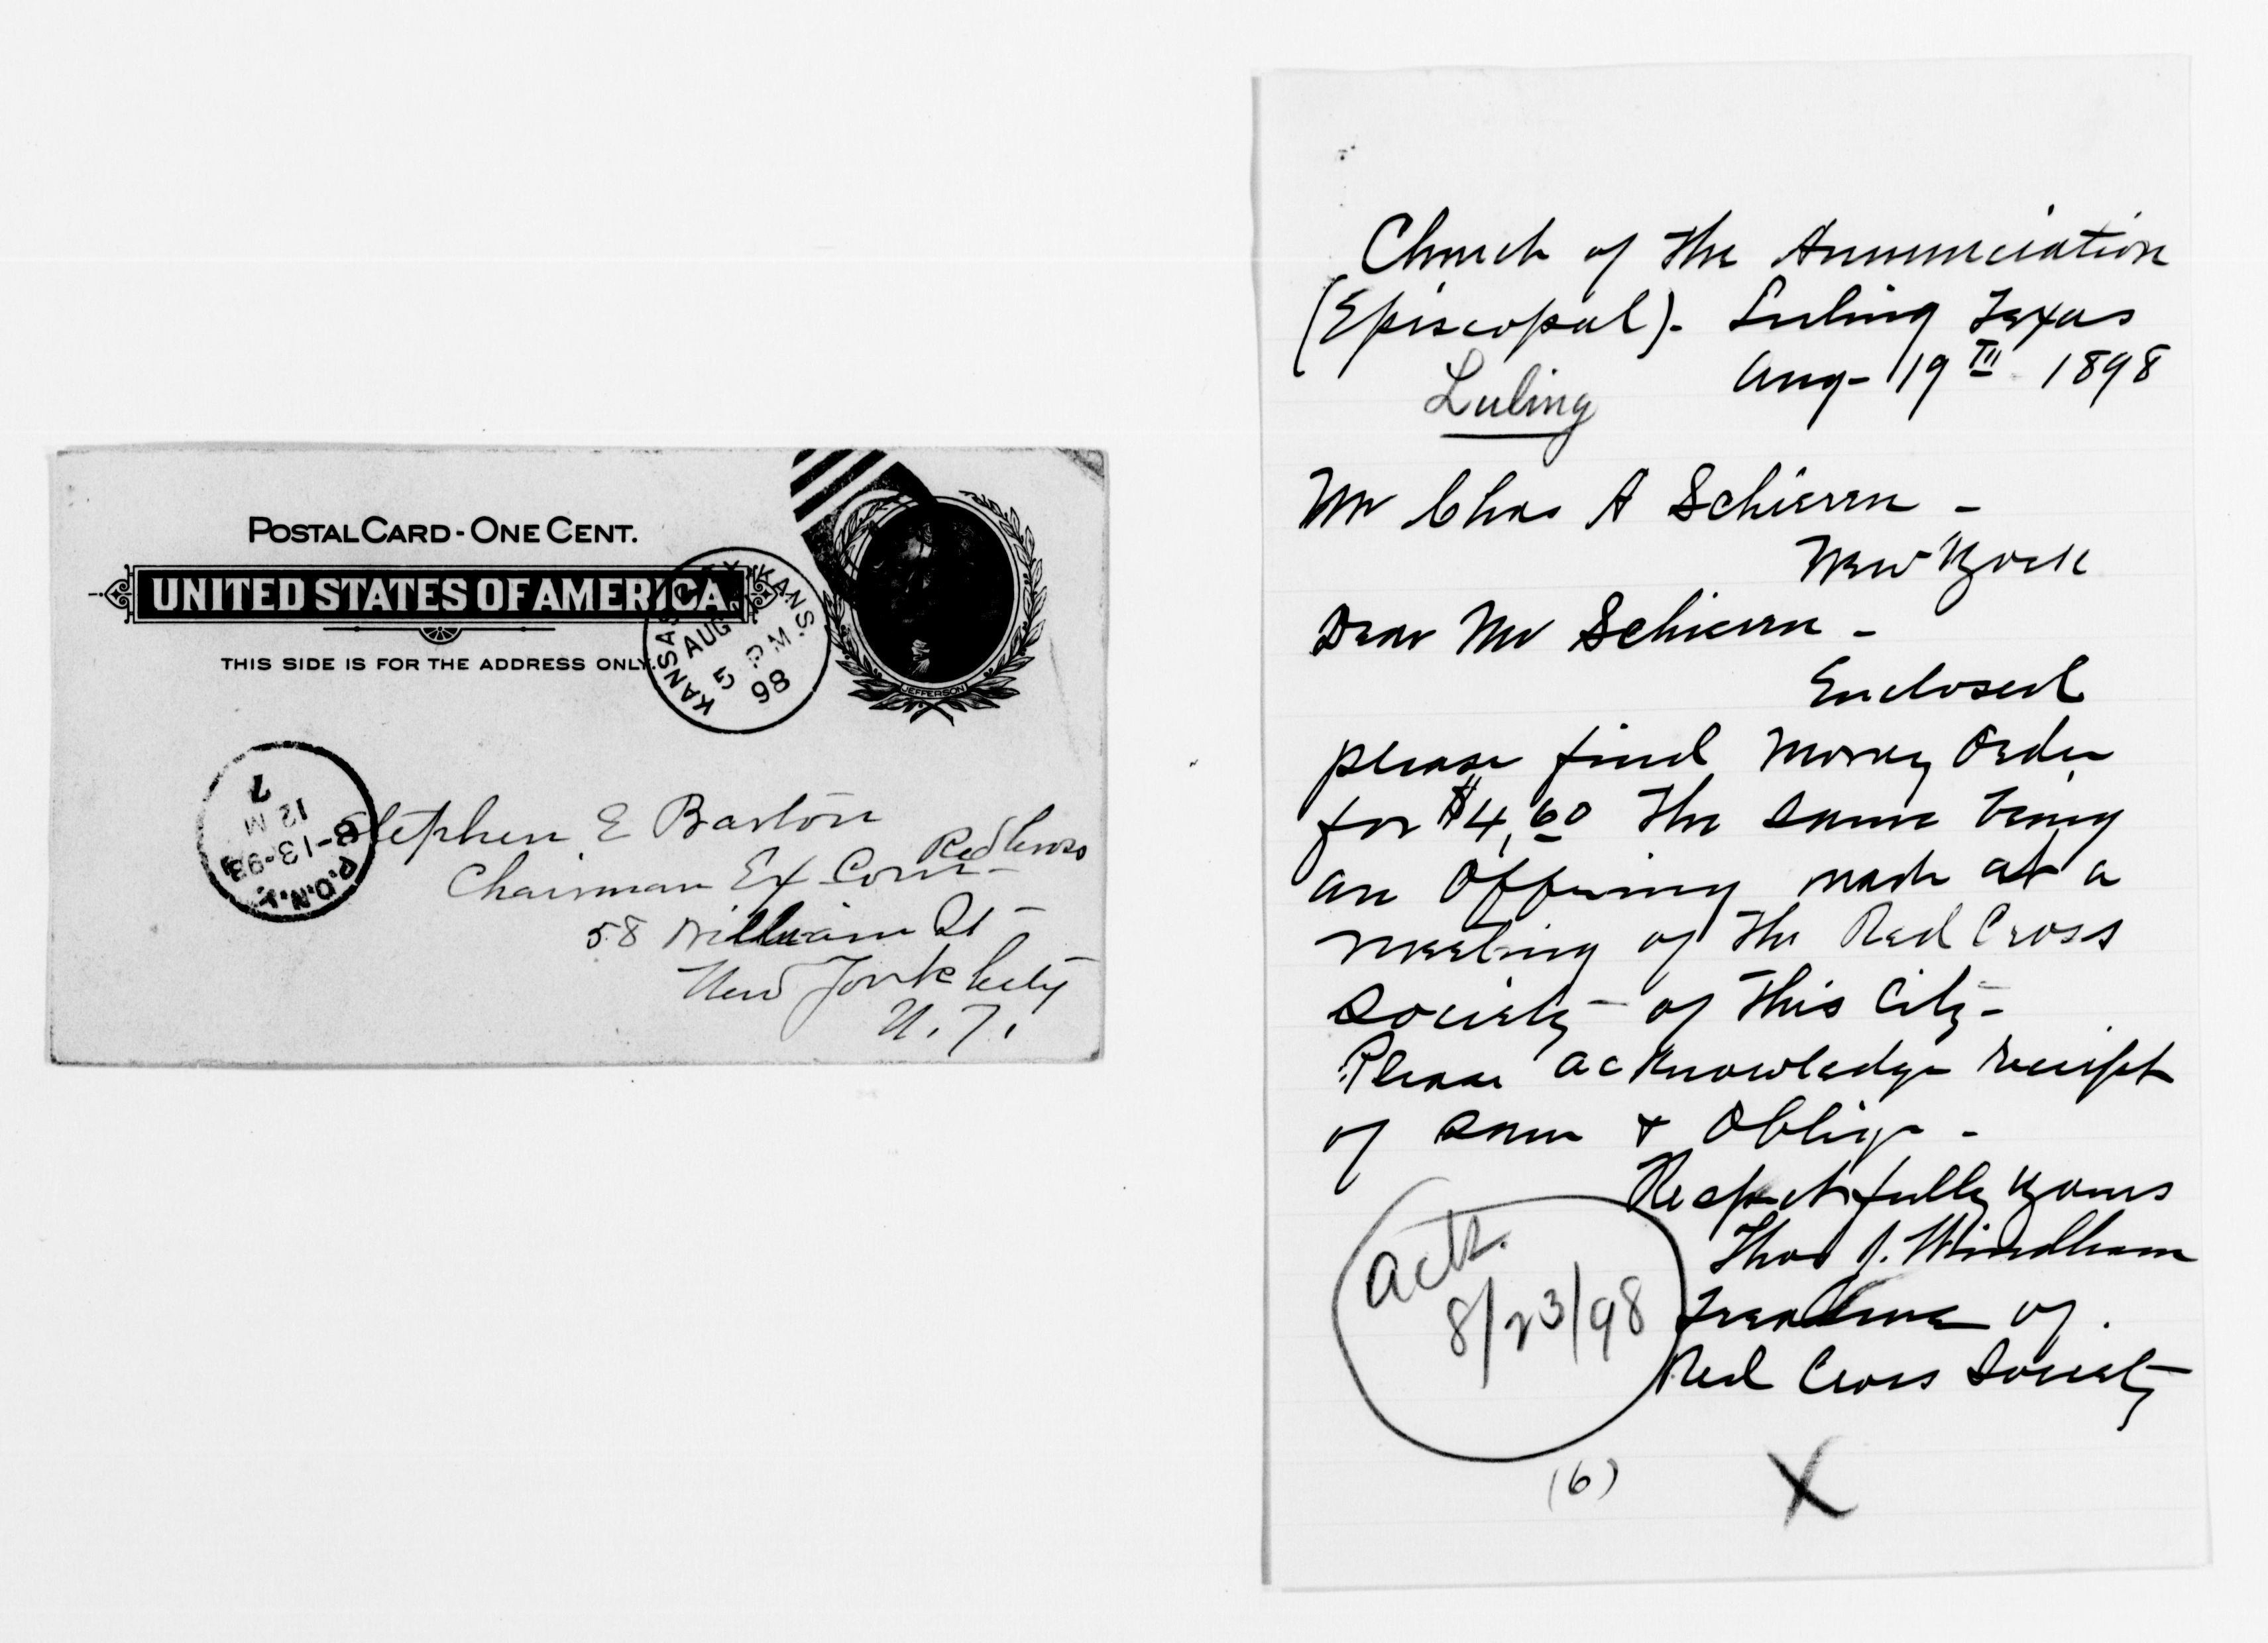 POSTAL CARD - ONE CENT.
UNITED STATES OF AMERICA.
THIS SIDE IS FOR THE ADDRESS ONLY.
KANSAS CITY KANS.
AUG
5 PM
98
JEFFERSON
P.O.N.Y.
8-13-98
12 M
7
Stephen E Barton
Chairman Ex Com- Red Cross
58 William St
New York City
N.Y.
Church of the Annunciation
(Episcopal). Luling Texas
Aug- 19TH 1898
Luling
Mr Chas A Schieren -
New York
Dear Mr Schieren -
Enclosed
please find Money Order
for $4,60 The same being
an Offering made at a
meeting of the Red Cross
Society - of this City -
Please acknowledge receipt
of same & Oblige -
Respectfully Yours
Thos J. Windham
Treasurer of
Red Cross Society
ack.
8/23/98
(6)
X